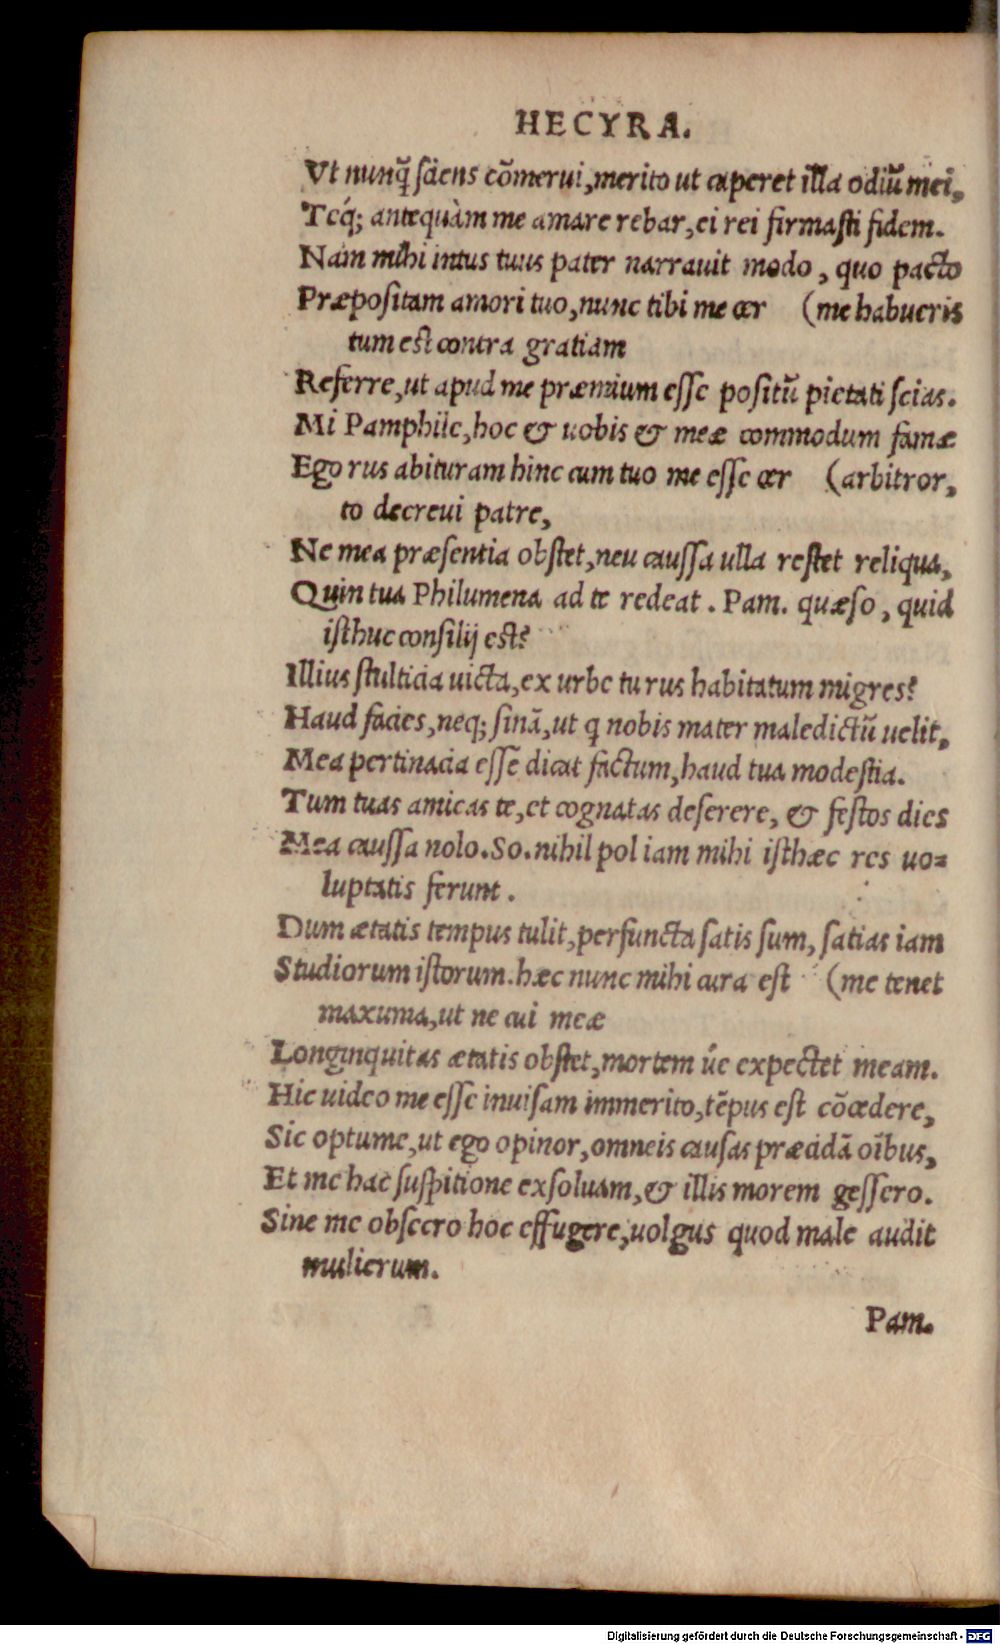 HECYRA.
Vt nunq̃ sciens cõmerui, merito ut caperet illa odiũ mei,
Teq́; antequàm me amare rebar, ei rei firmasti fidem.
Nam mihi intus tuus pater narrauit modo, quo pacto
Præpositam amori tuo, nunc tibi me cer (me habueris
tum est contra gratiam
Referre, ut apud me præmium esse positũ pietati scias.
Mi Pamphile, hoc & uobis & meæ commodum famæ
Ego rus abituram hinc cum tuo me esse cer (arbitror,
to decreui patre,
Ne mea præsentia obstet, neu caussa ulla restet reliqua,
Quin tua Philumena ad te redeat. Pam. quæso, quid
isthuc consilij est?
Illius stulticia uicta, ex urbe tu rus habitatum migres?
Haud facies, neq; sinã, ut q nobis mater maledictũ uelit,
Mea pertinacia essẽ dicat factum, haud tua modestia.
Tum tuas amicas te, et cognatas deserere, & festos dies
Mea caussa nolo. So. nihil pol iam mihi isthæc res uo=
luptatis ferunt.
Dum ætatis tempus tulit, perfuncta satis sum, satias iam
Studiorum istorum. hæc nunc mihi cura est (me tenet
maxuma, ut ne cui meæ
Longinquitas ætatis obstet, mortem úe expectet meam.
Hic uideo me esse inuisam immerito, tẽpus est cõcedere,
Sic optume, ut ego opinor, omneis causas præcidã oĩbus,
Et me hac suspitione exsoluam, & illis morem gessero.
Sine me obsecro hoc effugere, uolgus quod male audit
mulierum.
Pam.
Digitalisierung gefördert durch die Deutsche Forschungsgemeinschaft - DFG